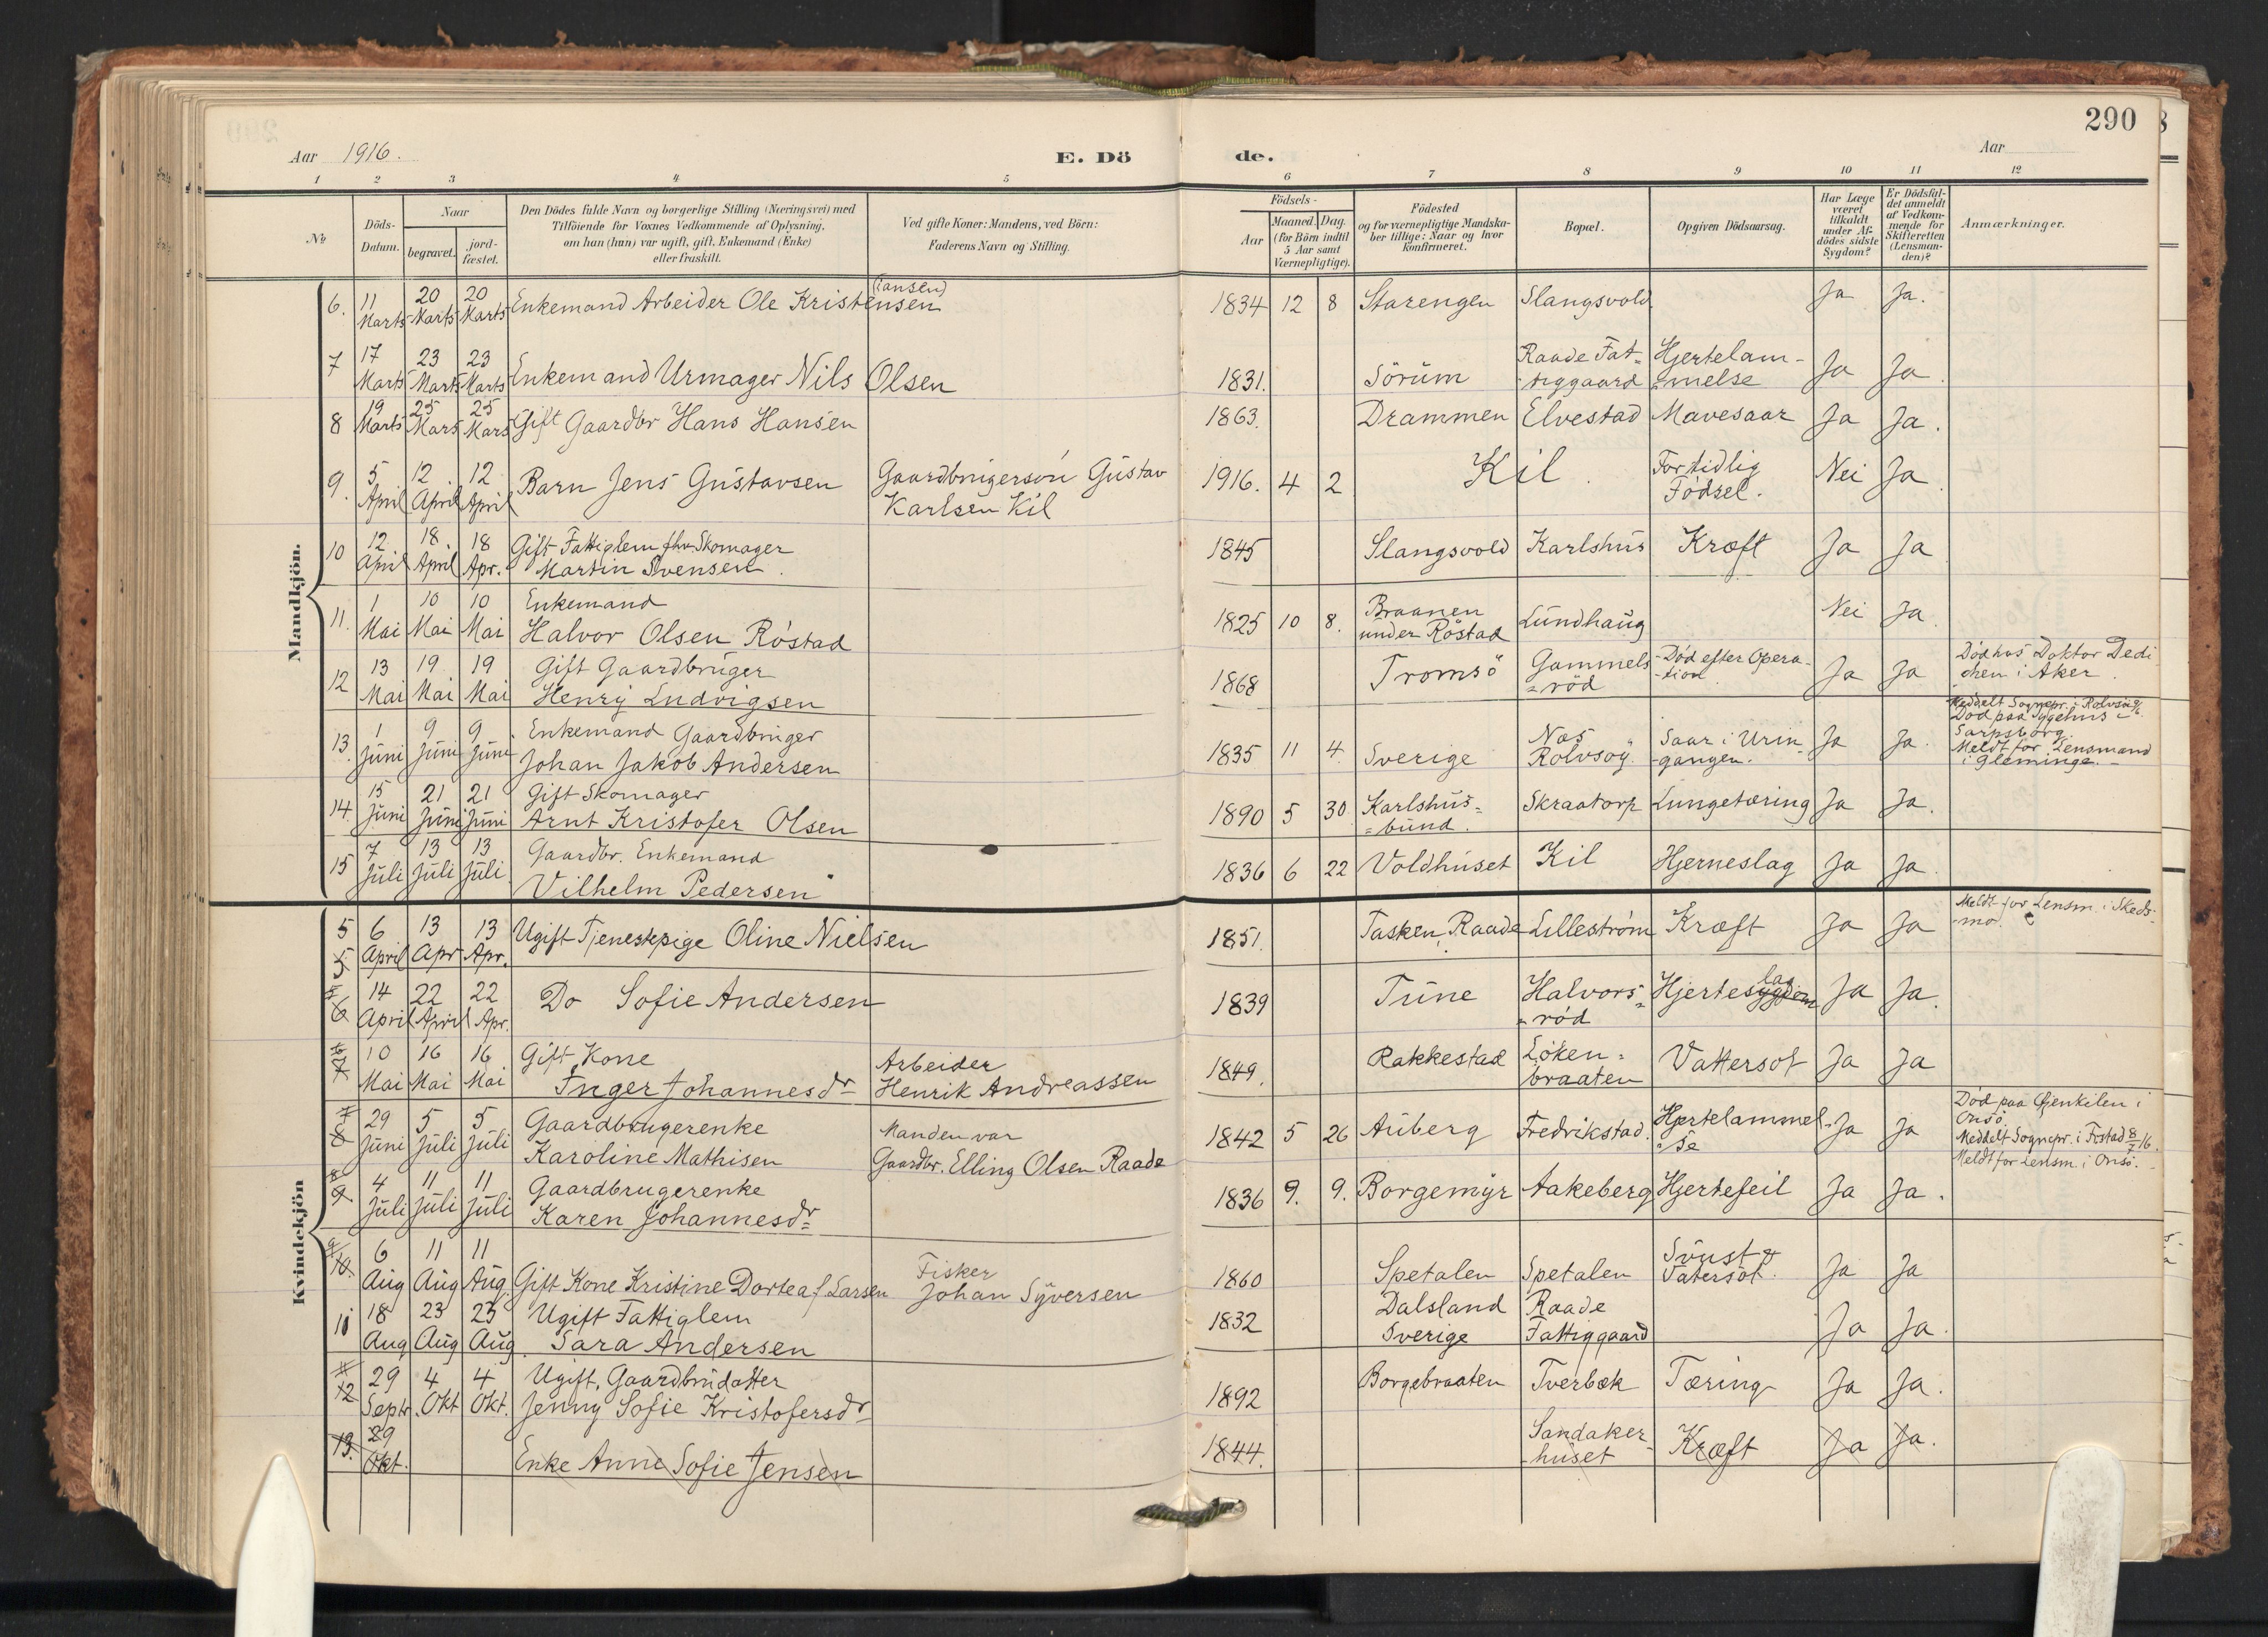 290
Aar 1916. E. Dö de. Aar
1 2 3 4 5 6 7 8 9 10 11 12
No
Döds-Datum.
Naar
begravet.
jord-fæstet.
Den Dödes fulde Navn og borgerlige Stilling (Næringsvei) med
Tilföiende for Voxnes Vedkommende af Oplysning,
om han (hun) var ugift, gift, Enkemand (Enke)
eller fraskilt.
Ved gifte Koner: Mandens, ved Börn:
Faderens Navn og Stilling.
Födsels-
Aar
Maaned. Dag.
(for Börn indtil
5 Aar samt
Værnepligtige).
Födested
og for værnepligtige Mandska-
ber tillige: Naar og hvor
konfirmeret.
Bopæl.
Opgiven Dödsaarsag.
Har Læge
været
tilkaldt
under Af-
dödes sidste
Sygdom?
Er Dödsfal-
det anmeldt
af Vedkom-
mende for
Skifteretten
(Lensman-
den)?
Anmærkninger.
Mandkjön.
6. 11 Marts 20 Marts 20 Marts Enkemand Arbeider Ole Kristensen (iansen) 1834 12 8 Starengen Slangsvold Ja Ja.
7 17 Marts 23 Marts 23 Marts Enkemand Urmager Nils Olsen 1831. Sörum Raade Fat=
tiggaard Hjertelam-
melse Ja Ja
8 19 Marts 25 Mars 25 Mars Gift Gaardbr Hans Hansen 1863. Drammen Elvestad Mavesaar Ja Ja.
9. 5 April 12 April 12 April Barn Jens Gustavsen Gaardbrugersön Gustav
Karlsen Kil 1916. 4 2 Kil. For tidlig
Födsel. Nei Ja
10 12. April 18. April 18 Apr. Gift Fattiglem fhv Skomager
Martin Svensen. 1845 Slangsvold Karlshus Kræft Ja Ja
11. 1 Mai 10 Mai 10 Mai Enkemand
Halvor Olsen Röstad 1825 10 8. Braanen
under Röstad Lundhaug Nei Ja
12 13 Mai 19. Mai 19 Mai Gift Gaardbruger
Henry Ludvigsen 1868 Tromsö Gammels
=röd Död efter Opera-
tion Ja Ja Död hos Doktor Dedi
chen i Aker.
13. 1 Juni 9 Juni 9 Juni Enkemand Gaardbruger
Johan Jakob Andersen 1835 11 4. Sverige Næs
Rolvsöy. Saar i Urin-
gangen. Ja Ja. Meddelt Sognepr. i Rolvsöy
Död paa Sygehus i
Sarpsborg.
Meldt for Lensmand
i Glemminge.
14. 15 Juni 21 Juni 21 Juni Gift Skomager
Arnt Kristofer Olsen 1890 5 30 Karlshus=
=bund. Skraatorp Lungetæring Ja Ja.
15 7 Juli 13 Juli 13 Juli Gaardbr. Enkemand
Vilhelm Pedersen 1836 6 22 Voldhuset Kil Hjerneslag Ja Ja.
Kvindekjön
5 6 April 13 Apr 13 Apr. Ugift Tjenestepige Oline Nielsen 1851. Tasken, Raade Lilleström Kræft Ja Ja Meldt for Lensm. i Skeds-
mo.
6 14 April 22 April 22 Apr. Do Sofie Andersen 1839 Tune Halvors=
=röd Hjerteslag Ja Ja.
7 10 Mai 16 Mai 16 Mai Gift Kone
Inger Johannesdr Arbeider
Henrik Andreassen 1849. Rakkestad Löken=
braaten Vattersot Ja Ja
7 8 29 Juni 5 Juli 5 Juli Gaardbrugerenke
Karoline Mathisen Manden var
Gaardbr. Elling Olsen Raade 1842 5 26 Auberg Fredrikstad. Hjertelammel-
se Ja Ja Död paa Gjenkilen i
Onsö.
Meddelt Sognepr. i Frstad 8/7 16.
Meldt for Lensm. i Onsö.
8 9 4 Juli 11 Juli 11 Juli Gaardbrugerenke
Karen Johannesdr 1836 9. 9. Borgemyr Aakeberg Hjertefeil Ja Ja.
9 10. 6 Aug 11 Aug 11 Aug. Gift Kone Kristine Dortea f. Larsen Fisker
Johan Syversen 1860 Spetalen Spetalen Svust &
Vatersot. Ja Ja
10 18 Aug 23 Aug 23 Aug. Ugift Fattiglem
Sara Andersen 1832 Dalsland
Sverige Raade
Fattiggaard Ja Ja.
11 12 29 Septr. 4 Okt 4 Okt. Ugift, Gaardbrudatter
Jenny Sofie Kristofersdr 1892 Borgebraaten Tverbæk Tæring Ja Ja.
13. 29 Okt. Enke Anne Sofie Jensen 1844. Sandaker-
huset Kræft Ja Ja.